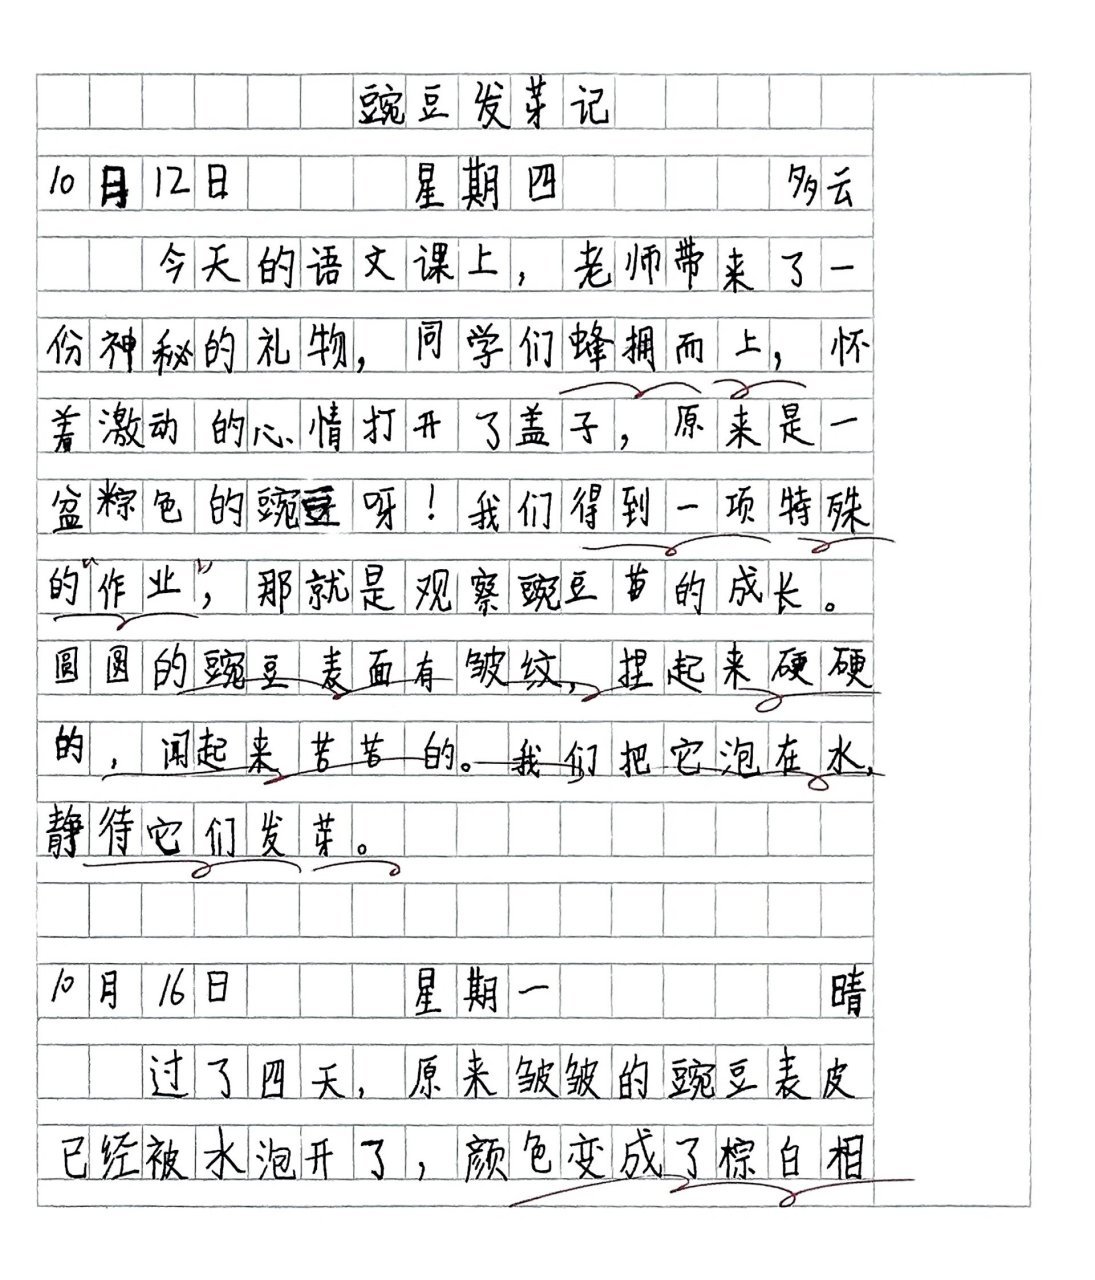 豌豆发芽记
10月12日 星期四 多云
今天的语文课上，老师带来了一
份神秘的礼物，同学们蜂拥而上，怀
着激动的心情打开了盖子，原来是一
盆粽色的豌豆呀！我们得到一项特殊
的“作业”，那就是观察豌豆苗的成长。
圆圆的豌豆表面有皱纹，捏起来硬硬
的，闻起来苦苦的。我们把它泡在水，
静待它们发芽。
10月16日 星期一 晴
过了四天，原来皱皱的豌豆表皮
已经被水泡开了，颜色变成了棕白相